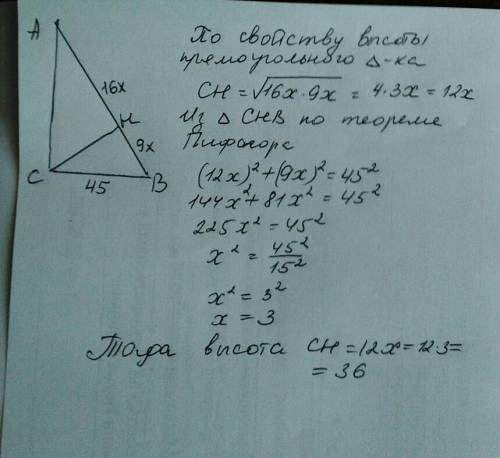 A
16x
H
9x
C
45
B
По свойству высоты
прямоугольного Δ-ка
CH = √16x·9x = 4·3x = 12x
Из Δ CHB по теореме
Пифагора
(12x)² + (9x)² = 45²
144x² + 81x² = 45²
225x² = 45²
x² = 45²/15²
x² = 3²
x = 3
Тогда высота CH = 12x = 12·3 =
= 36